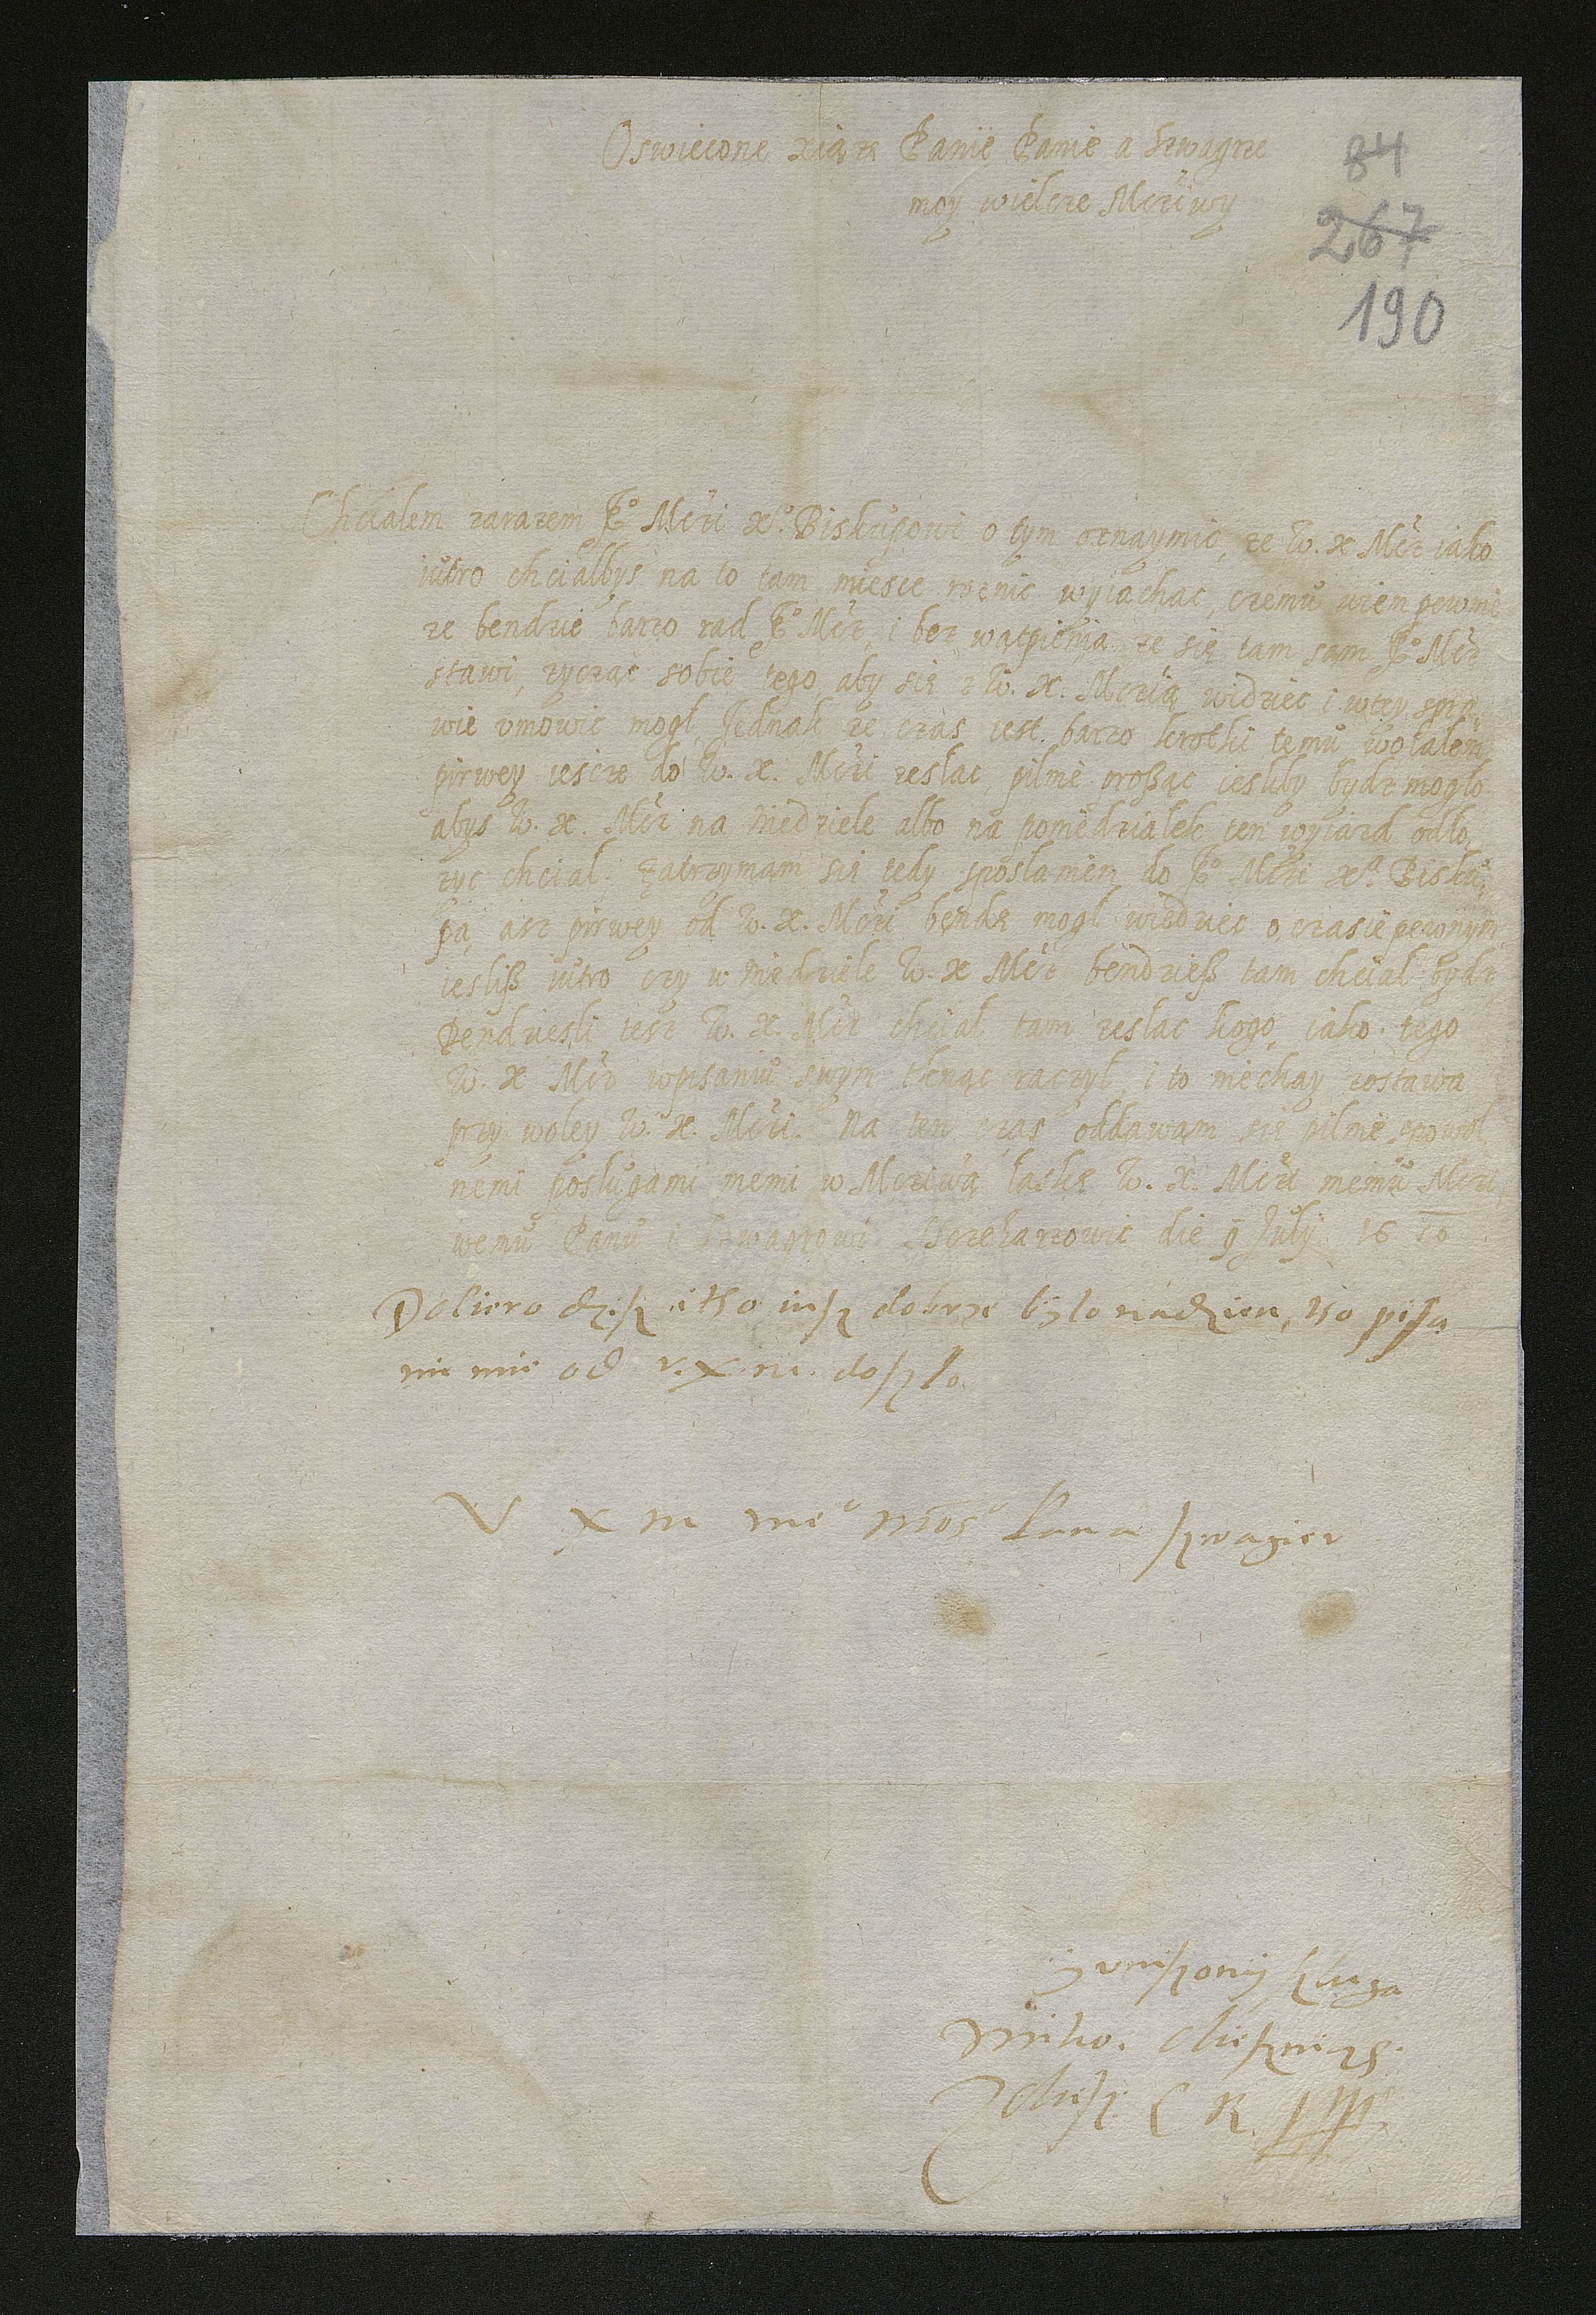 Oswiecone xiąze Panie Panie a szwagrze
moy wielce Mczÿwy
84
267
190
Chcialem zarazem Jº Mczi xº. Biskupowi o tym oznaymic, ze W. x Mcz iako
iutro chcialbys na to tam miesce rocnic wyiachac, czemu wiem pewnie
ze bendzie barzo rad Jº Mcz, i bez wątpienia ze się tam sam Jº Mcz
stawi, zycząc sobie tego aby się z W. X. Mczią widziec i wtey spra,
wie vmowic mogl, Jednak ze czas iest barzo krotki temu wolalem
pirwey iescze do W. X. Mczi zeslac, pilnie proßąc iesliby bydz moglo
abys W. X. Mcz na Niedziele albo na poniedzialek ten wyiazd odlo,
zyc chcial; zatrzymam się tedy sposlaniem do Jº Mczi xª. Bisku,
pa, asz pirwey od W. X. Mczi bendę mogl wiedziec o czasie pewnym
iesliß iutro czy w Niedziele W. X Mcz bendzieß tam chcial bydz,
Bendziesli tesz W. X. Mcz chcial tam zeslac kogo, iako tego
W. X Mcz wpisaniu swym tknąc raczyl, i to niechay zostawa
przy woley W. X. Mczi. Na ten czas oddawam się pilnie spowol,
nemi poslugami memi w Mcziwą laskę W. X. Mczi memu Mczi,
wemu Panu i szwagrowi die 9 July 16 16
Doliero dziß iusz dobrze bylo nadzien, ko pisa
nie mie od v. X m. doszlo
V X m meº Mosº Pana szwagier
y vnizony sluga